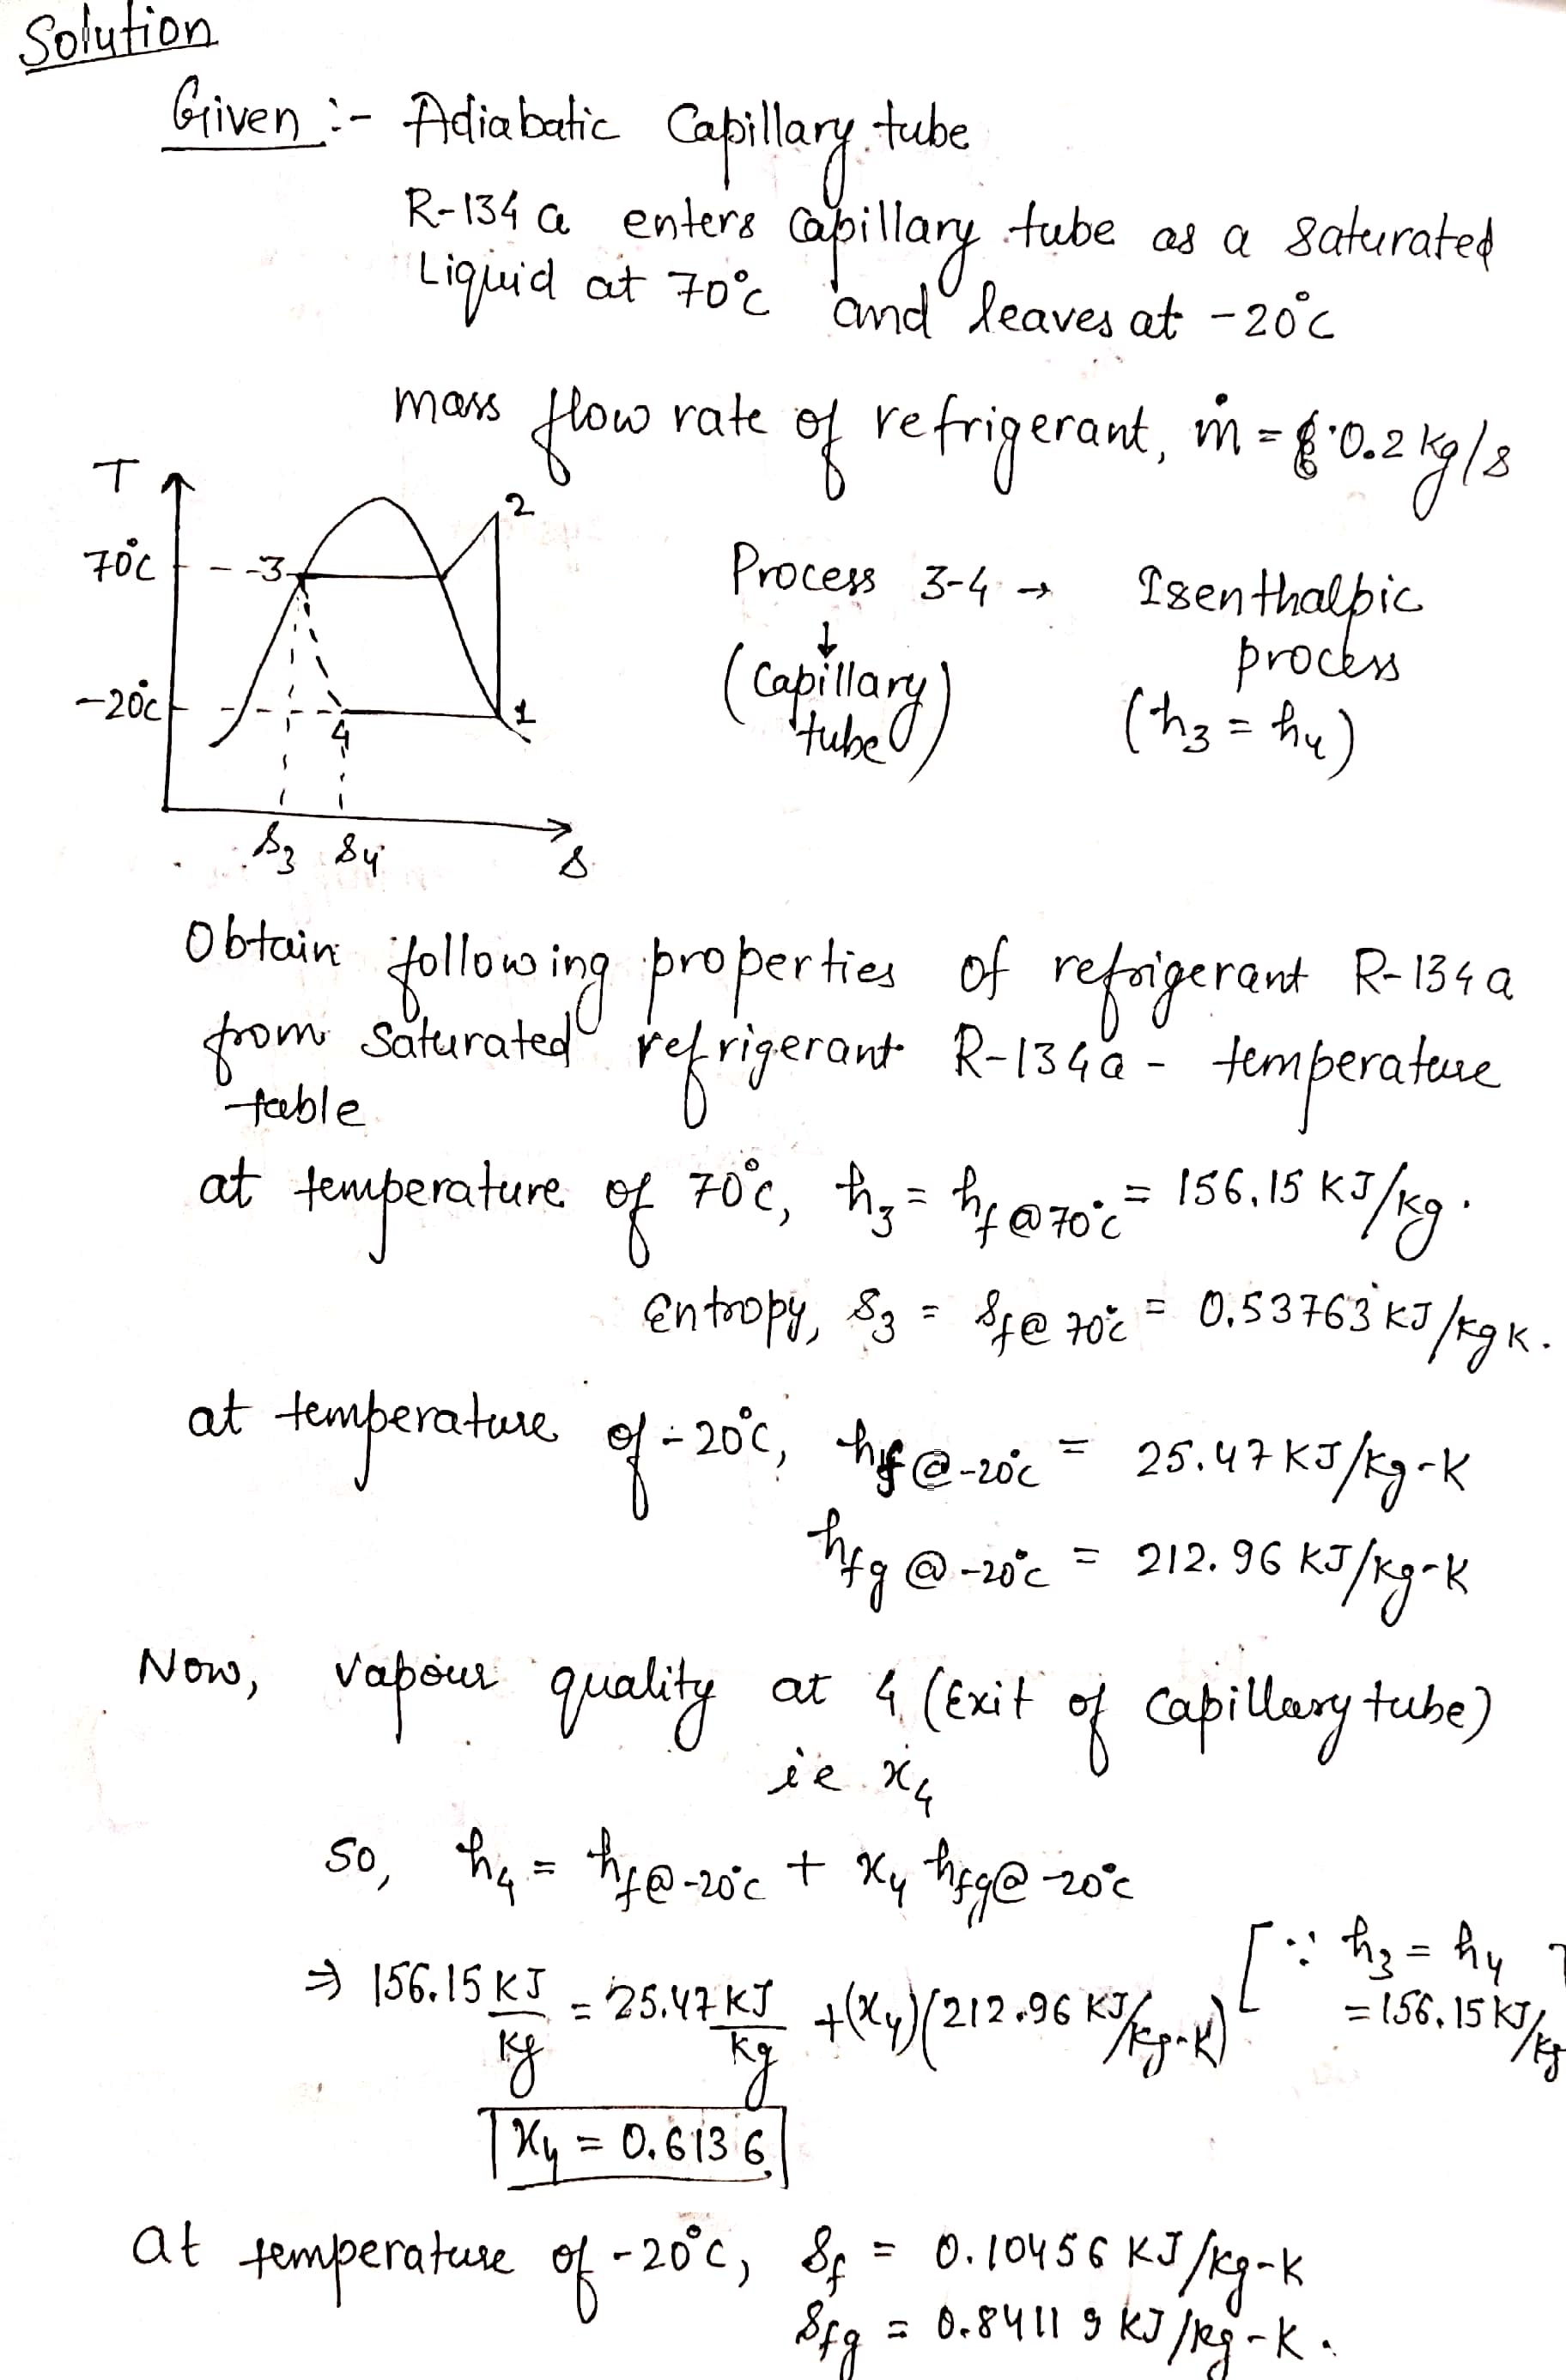 Solution
Given :- Adiabatic Capillary tube
R-134 a enters Capillary tube as a saturated
Liquid at 70°C and leaves at -20°C
mass flow rate of refrigerant, ṁ = 0.2 kg/s
T
70°C
-20°C
3
2
4
1
s₃ s₄
s
Process 3-4 → Isenthalpic
↓ process
(Capillary tube) (h₃ = h₄)
Obtain following properties of refrigerant R-134a
from Saturated refrigerant R-134a - temperature
table
at temperature of 70°C, h₃ = hf@70°C = 156.15 KJ/kg.
Entropy, s₃ = sf@70°C = 0.53763 KJ/kgK.
at temperature of -20°C, hf@-20°C = 25.47 KJ/kg-K
hfg@-20°C = 212.96 KJ/kg-K
Now, vapour quality at 4 (Exit of Capillary tube)
ie x₄
So, h₄ = hf@-20°C + x₄ hfg@-20°C
⇒ 156.15 KJ/kg = 25.47 KJ/kg + (x₄)(212.96 KJ/kg-K) [∵ h₃ = h₄
= 156.15 KJ/kg
x₄ = 0.6136
at temperature of -20°C, sf = 0.10456 KJ/kg-K
sfg = 0.84119 KJ/kg-K.